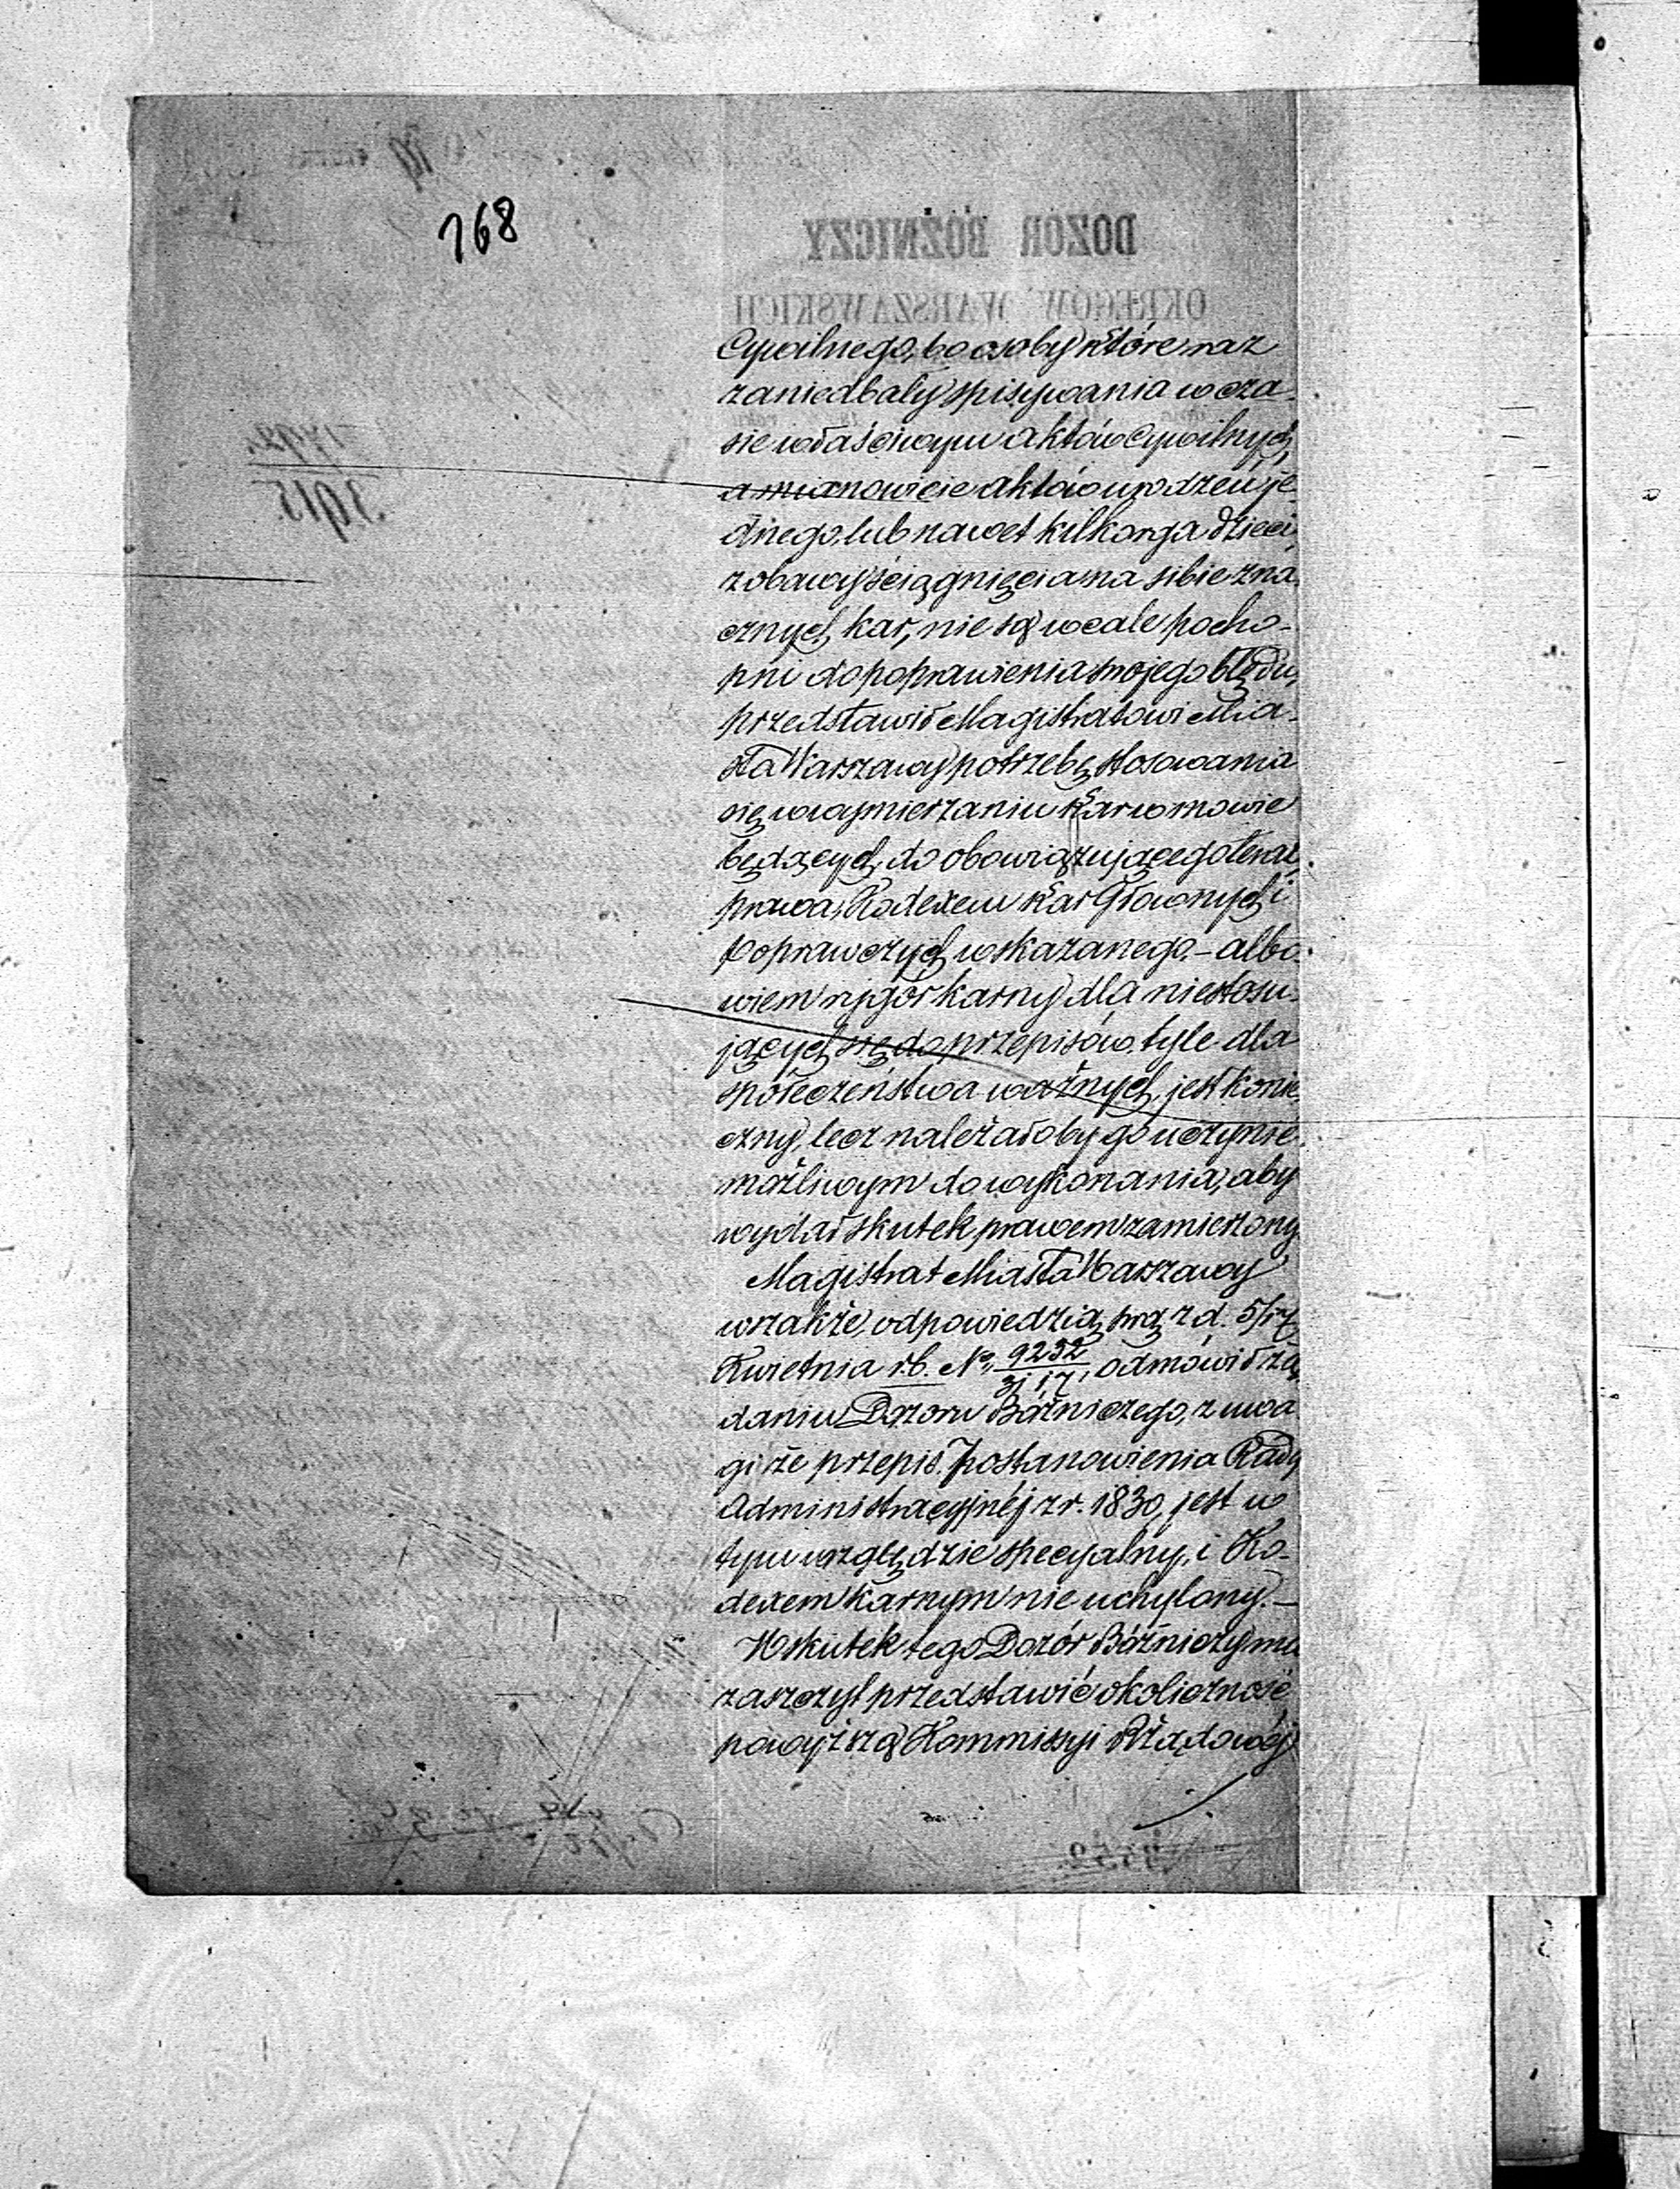 168
DOZÓR BÓŻNICZY
OKRĘGÓW WARSZAWSKICH
Cywilnego, bo osoby które raz
zaniedbały spisywania w cza-
sie właściwym aktów Cywilnych,
a mianowicie aktów urodzeń je-
dnego, lub nawet kilkorga dzieci,
z obawy ściągnięcia na sibie zna-
cznych kar, nie są wcale pocho-
pni do poprawienia swojego błędu,
przedstawił Magistratowi Mia-
sta Warszawy potrzebę stosowania
się w wymierzaniu kar w mowie
będących, do obowiązującego teraz
prawa, Kodexem Kar Głównych i
Poprawczych wskazanego. – albo-
wiem rygór karny dla niestosu-
jących się do przepisów, tyle dla
społeczeństwa ważnych, jest konie-
czny, lecz należałoby go uczynić
możliwym do wykonania, aby
wydał skutek prawem zamierzony
Magistrat Miasta Warszawy
wszakże, odpowiedzią swą z d. 5/17
Kwietnia r.b. No 9232/31 17, odmówił żą-
daniu Dozoru Bóżniczego, z uwa-
gi że przepis Postanowienia Rady
Administracyjnéj z r. 1830, jest w
tym względzie specyalny, i Ko-
dexem karnym nie uchylony. –
W skutek tego Dozór Bóżniczy ma
zaszczyt przedstawić okoliczność
powyższą Kommissyi Rządowéj